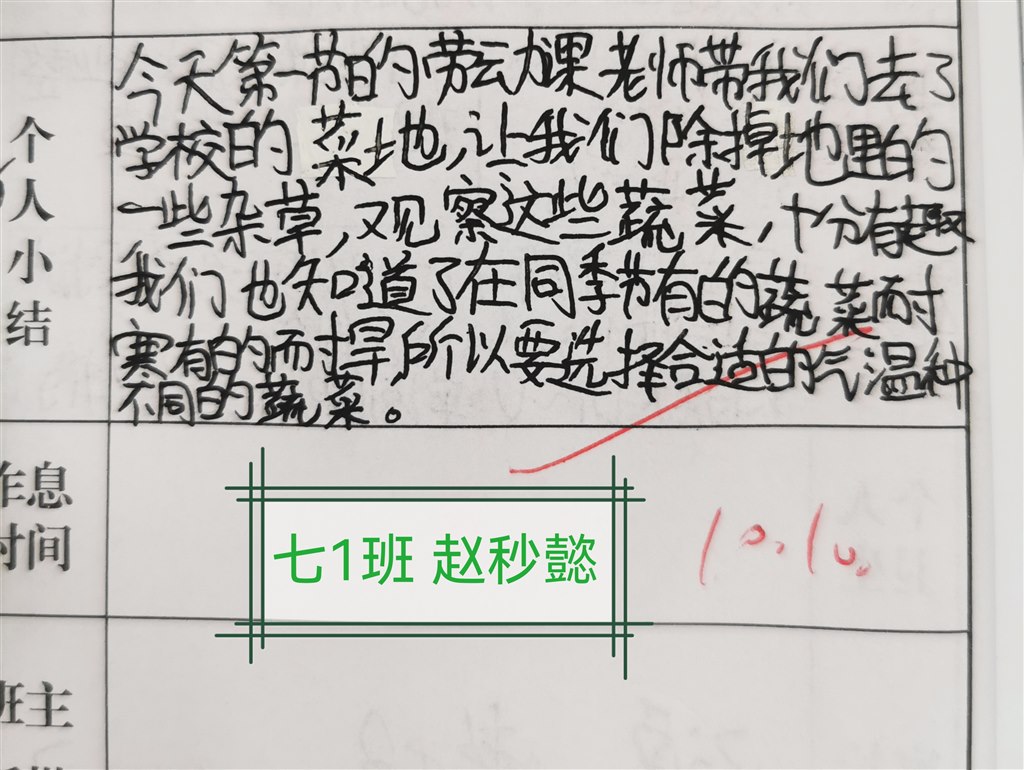 个人小结
今天第一节的劳动课老师带我们去了
学校的菜地,让我们除掉地里的
一些杂草,又观察这些蔬菜,十分有趣
我们也知道了在同季节有的蔬菜耐
寒有的耐旱,所以要选择合适的气温种
不同的蔬菜。
作息
时间
七1班 赵秒懿
10.10.
班主